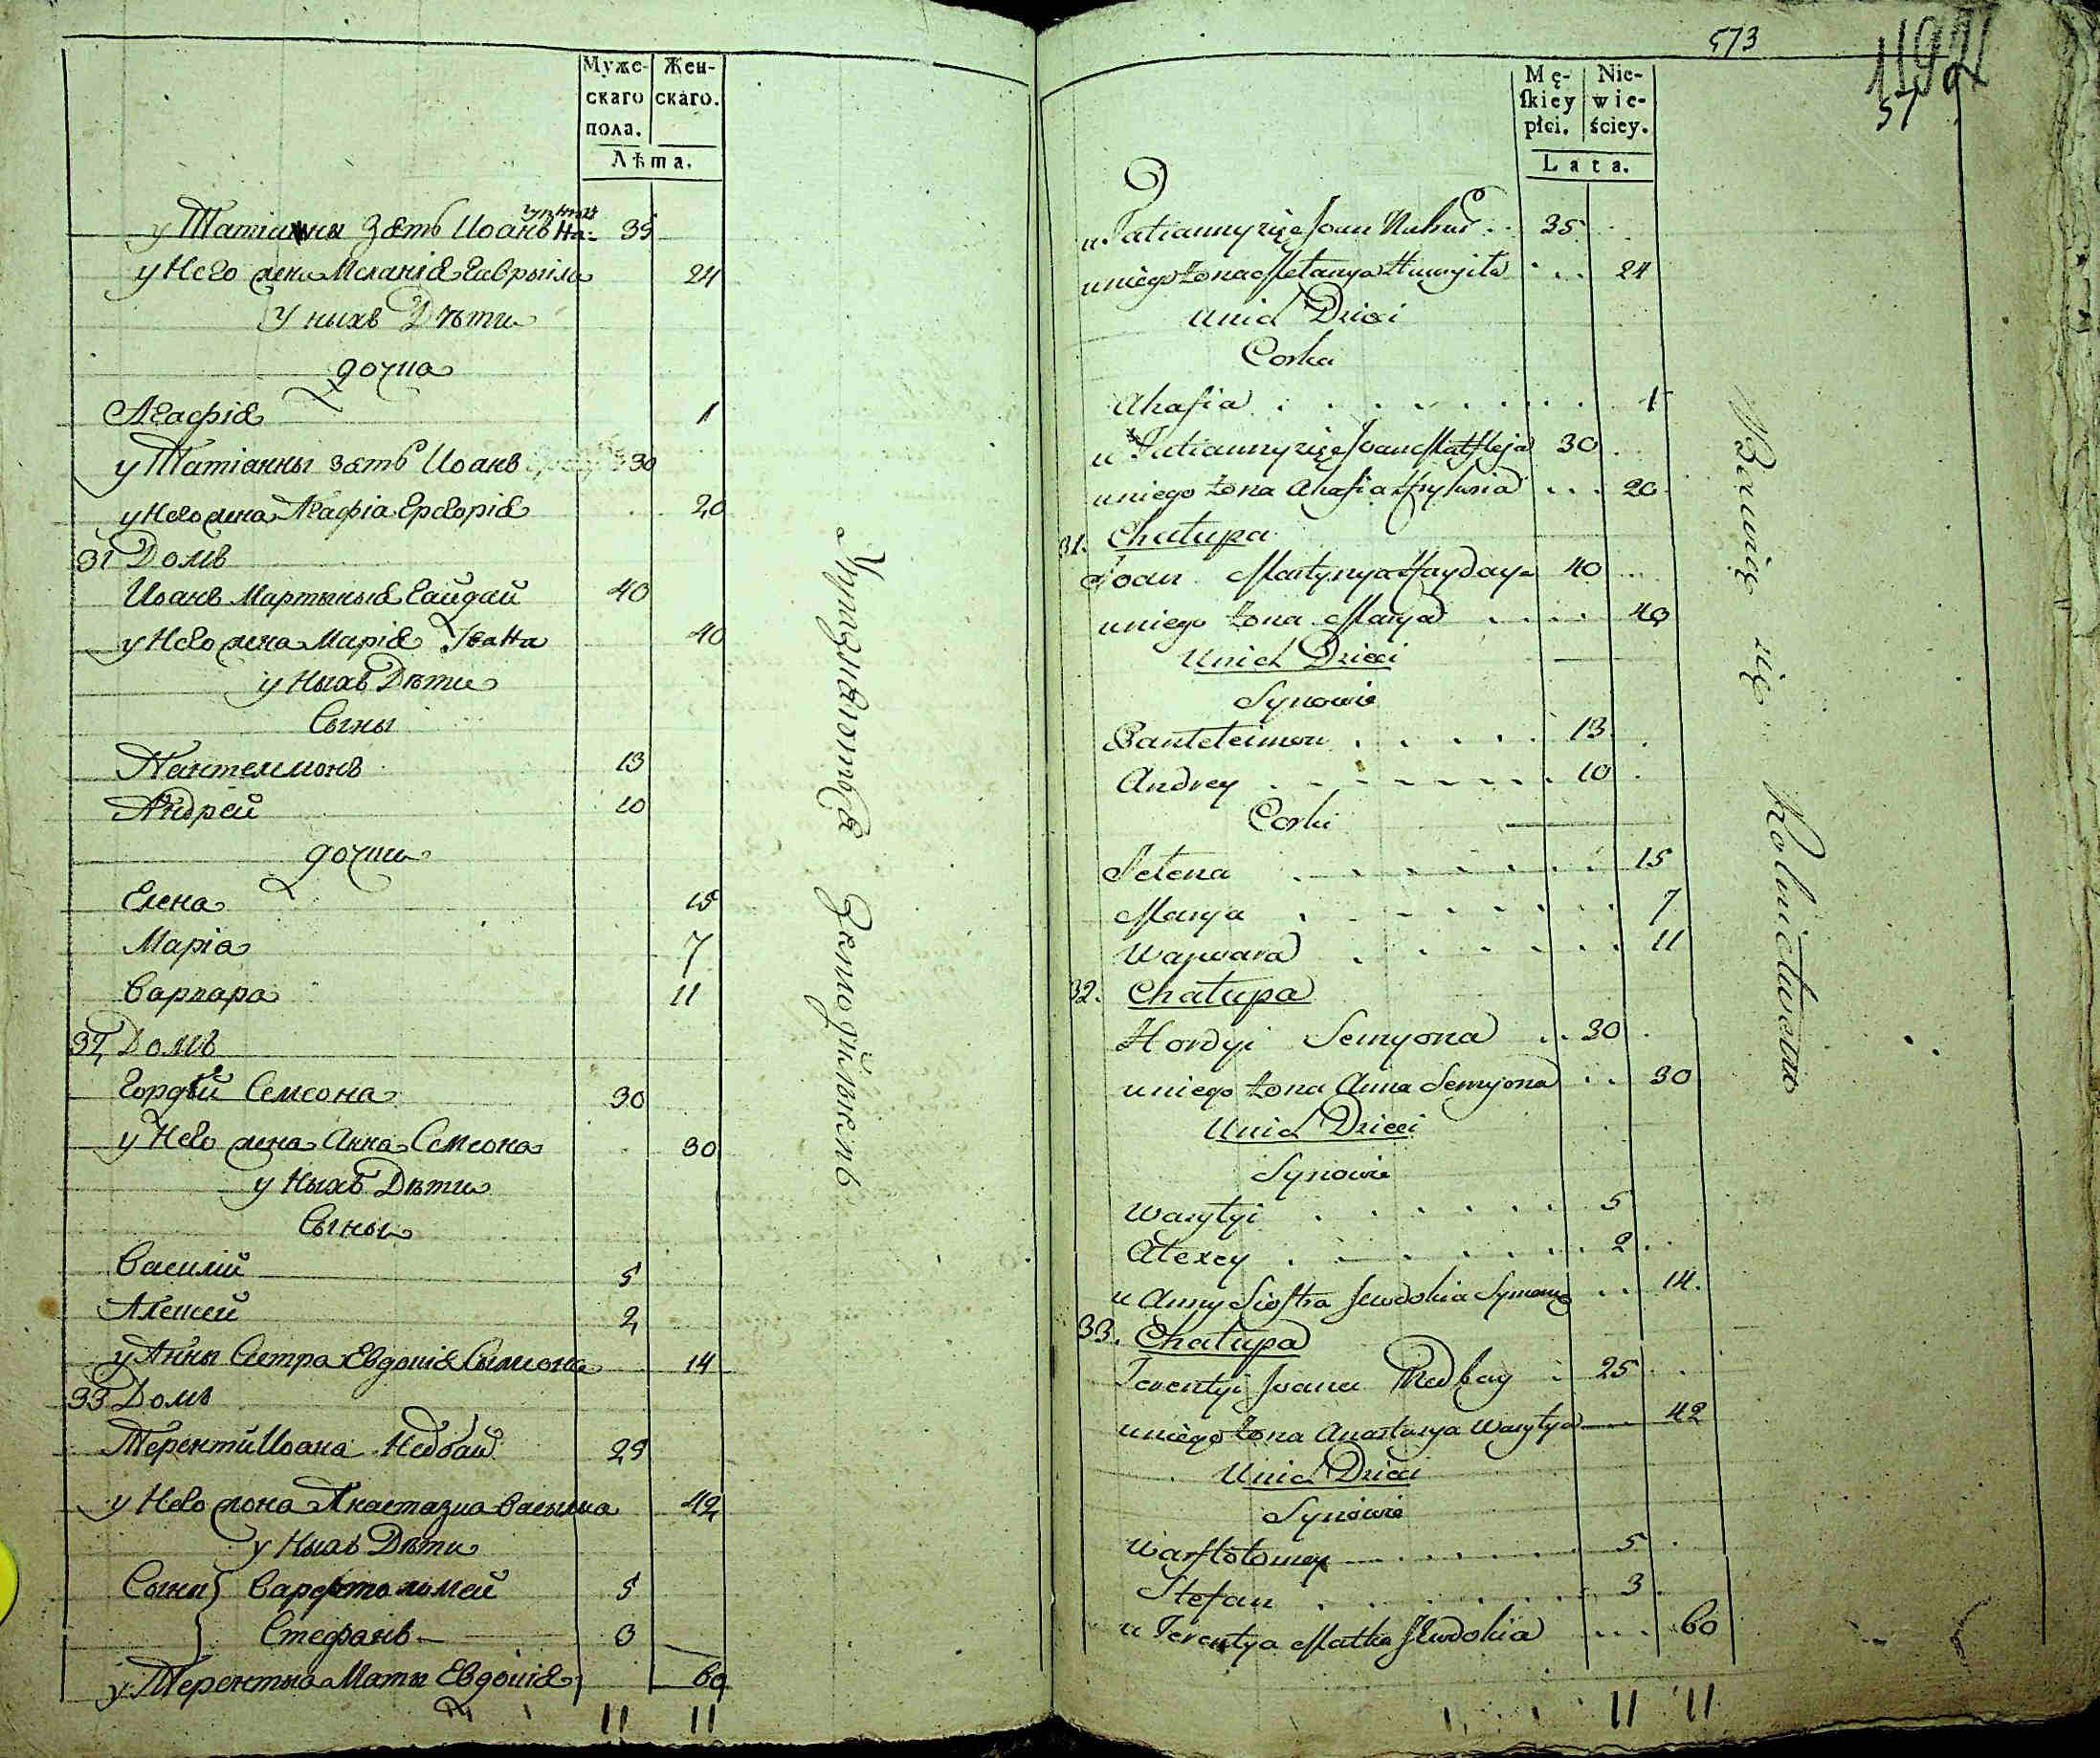 Муже-
скаго
пола.
Жен-
скаго.
Лѣта.
у Татіанны зять Иоанъ На- 35
у Него жена Меланія Гаврыила 24
У ныхъ Дѣти
дочка
Агафія 1
у Татіанны зять Иоанъ 30
у Него жена Агафіа Грегорія 20
31 Домъ
Иоанъ Мартыныя Гайдай 40
у Него жена Марія Ивана 40
у Ныхъ Дѣти
Сыны
Пантелмонъ 13
Андрей 10
дочки
Елена 15
Маріа 7
Варвара 11
32 Домъ
Гордѣй Семеона 30
у Него жена Анна Семеона 30
у Ныхъ Дѣти
Сыны
Василій 5
Алексей 2
у Анны Сестра Евдокія Сымеона 14
33 Домъ
Терентій Иоана Недбай 25
у Него жона Анастазиа Васылиа 42
у Ныхъ Дѣти
Сыны Варфтоломей 5
Стефанъ 3
у Терентыа Маты Евдокія 60
11 11
Упразнаютъся Земледѣліемъ
573
57
Mę-
ſkiey
płci.
Nie-
wie-
ściey.
Lata.
u Tatianny zięć Joan 35
u niego żona Melanya Hawryiła 24
u nich Dzieci
Corka
Ahafia 1
u Tatianny zięć Joan 30
u niego żona Ahafia Hryhoria 20
31. Chałupa
Joan Martynya Hayday 40
u niego żona Marya 40
U nich Dzieci
Synowie
Panteleimon 13
Andrey 10
Corki
Jelena 15
Marya 7
Warwara 11
32. Chałupa
Hordyi Semyona 30
u niego żona Anna Semyona 30
U nich Dzieci
Synowie
Wasylyi 5
Alexey 2
u Anny Siostra Jewdokia Symona 14.
33. Chałupa
Terentyi Joana Nedbay 25
u niego żona Anastasya Wasylya 42
U nich Dzieci
Synowie
Warftołomey 5
Stefan 3
u Terentya Matka Jewdokia 60
11 11
Bawią się Rolnictwem